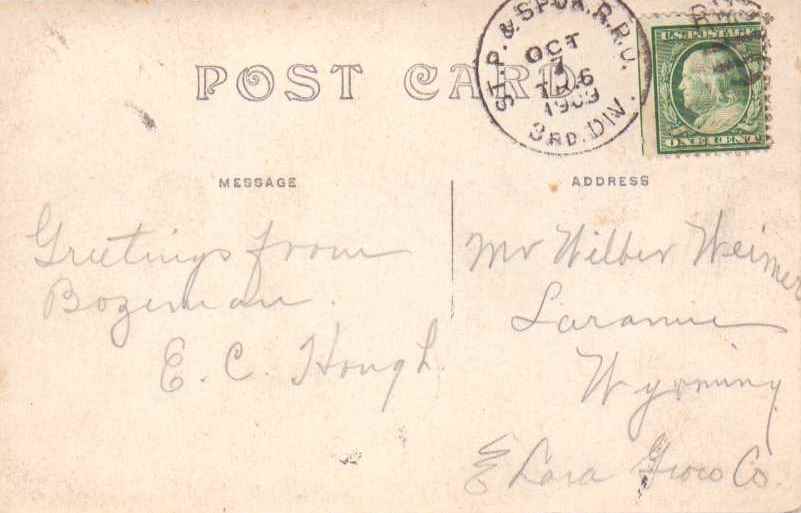 POST CARD
ST. P. & SPOK. R.P.O.
OCT
7
TR 6
1909
3RD. DIV.
U.S. POSTAGE
ONE CENT
MESSAGE
ADDRESS
Greetings from
Bozeman.
E. C. Hough.
Mr Wilber Weimer
Laramie
Wyoming
Lara Groco Co.